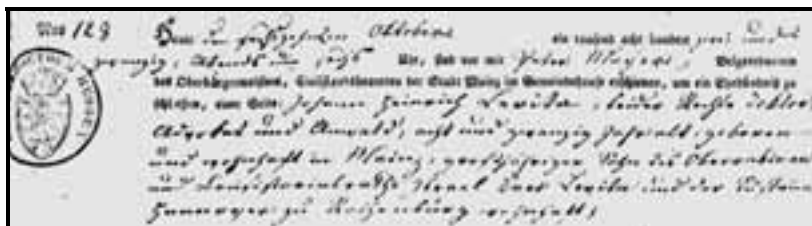 Nro 128 Heute den sechszehnten Oktobers ein tausend acht hundert zwei und
zwanzig, Abends um sechs Uhr, sind vor mir Peter Mayers, Beigeordneten
des Oberbürgermeisters, Civilstandsbeamten der Stadt Mainz im Gemeindehause erschienen, um ein Ehebündniß zu
schließen, eines Theils Johann Heinrich Levita, beider Rechte doktor
Advokat und Anwald, acht und zwanzig Jahr alt, geboren
und wohnhaft in Mainz, großjähriger Sohn des Oberrabiners
und Konsistorialraths Israel und der
zu wohnhaft,